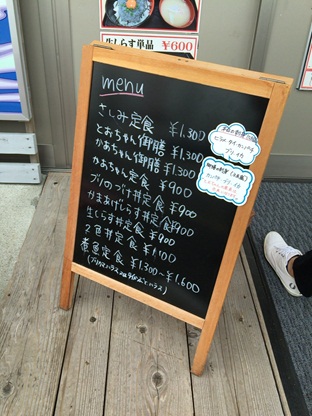 生しらす単品 ¥600
menu
さしみ定食 ¥1.300
とおちゃん御膳 ¥1.300
かあちゃん御膳 ¥1.300
かあちゃん定食 ¥900
ブリのづけ丼定食 ¥900
かまあげしらす丼定食 ¥900
生しらす丼定食 ¥900
2色丼定食 ¥1.100
煮魚定食 ¥1.300〜¥1.600